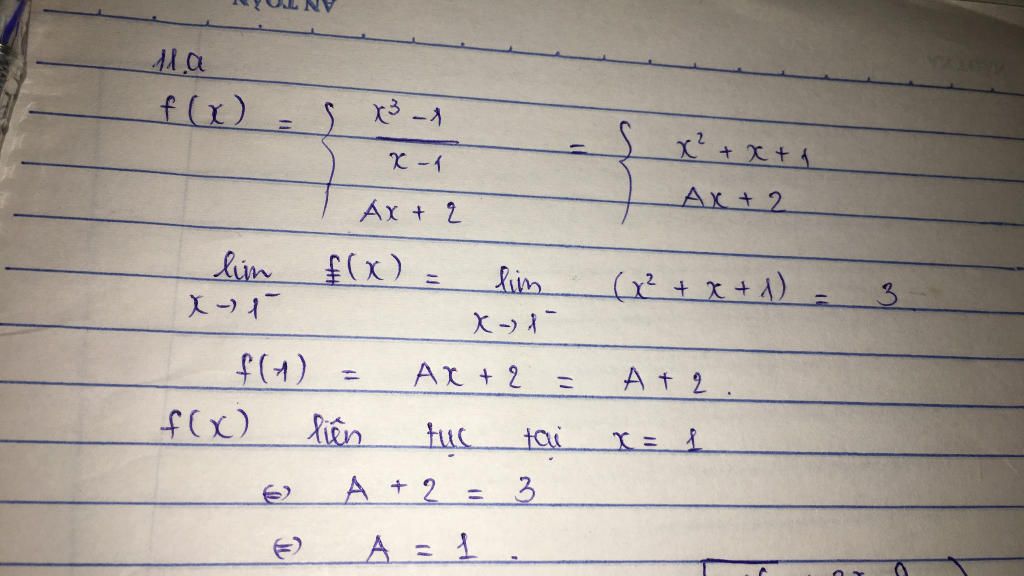 AN TOÀN
11.a
f(x) = { (x³ - 1)/(x - 1) ; Ax + 2 = { x² + x + 1 ; Ax + 2
lim x→1⁻ f(x) = lim x→1⁻ (x² + x + 1) = 3
f(1) = Ax + 2 = A + 2.
f(x) liên tục tại x = 1
⇔ A + 2 = 3
⇔ A = 1.